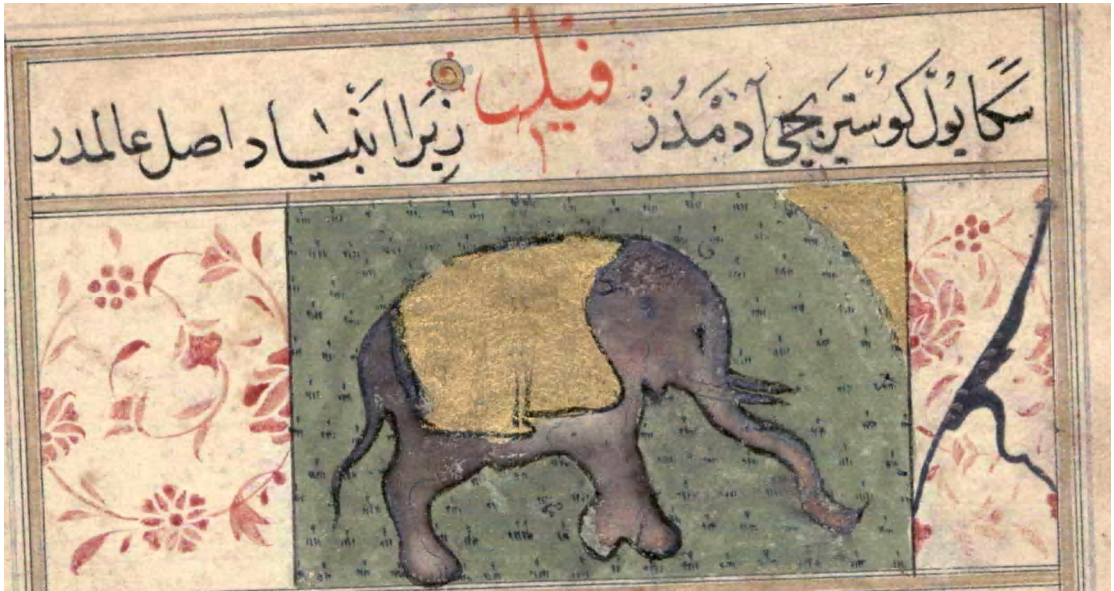 سكا يول كوستريجى آدمدر فيل زيرا ابنياد اصل عالمدر